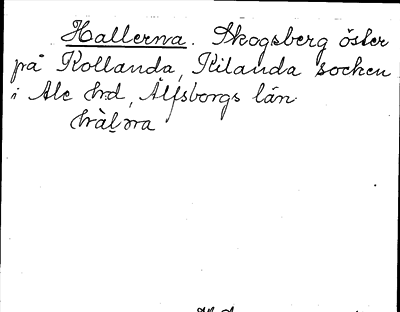 Hallerna. Skogsberg öster
på Kollanda, Kilanda socken
i Ale hd, Älfsborgs län